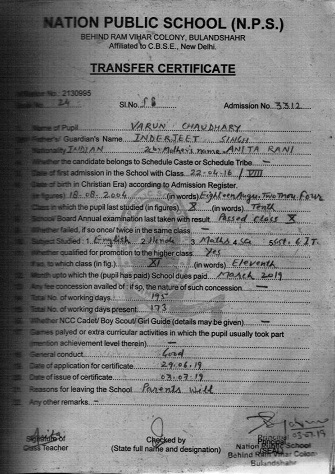 NATION PUBLIC SCHOOL (N.P.S.)
BEHIND RAM VIHAR COLONY, BULANDSHAHR
Affiliated to C.B.S.E., New Delhi.
TRANSFER CERTIFICATE
Affiliation No. 2130995
Book No. 24 Sl.No. 58 Admission No. 3312
Name of Pupil VARUN CHAUDHARY
Father's/ Guardian's Name INDERJEET SINGH
Nationality INDIAN 2b. Mother's name ANITA RANI
Whether the candidate belongs to Schedule Caste or Schedule Tribe —
Date of first admission in the School with Class. 22-04-16 / VIII
Date of birth in Christian Era) according to Admission Register.
(in figures) 18.08.2004 (in words) Eighteen Augu. Two Thou Four
Class in which the pupil last studied (in figures) X (in words) Tenth
School/ Board Annual examination last taken with result. Passed Class X
Whether failed, if so once/ twice in the same class —
Subject Studied : 1. English 2. Hindi 3. Maths 4. Sci 5. SSt. 6. I.T.
Whether qualified for promotion to the higher class Yes
If so, to which class (in fig.) XI (in words) Eleventh
Month upto which the (pupil has paid) School dues paid March 2019
Any fee concession availed of : if so, the nature of such concession —
Total No. of working days 195
Total No. of working days present: 173
Whether NCC Cadet/ Boy Scout/ Girl Guide (details may be given) —
Games palyed or extra curricular activities in which the pupil usually took part
(mention achievement level therein) —
General conduct Good
Date of application for certificate 29.06.19
Date of issue of certificate 03.07.19
Reasons for leaving the School Parents will
Any other remarks —
Signature of Checked by
Class Teacher (State full name and designation)
03.07.19
Nation Public School
Behind Ram Vihar Colony
Bulandshahr